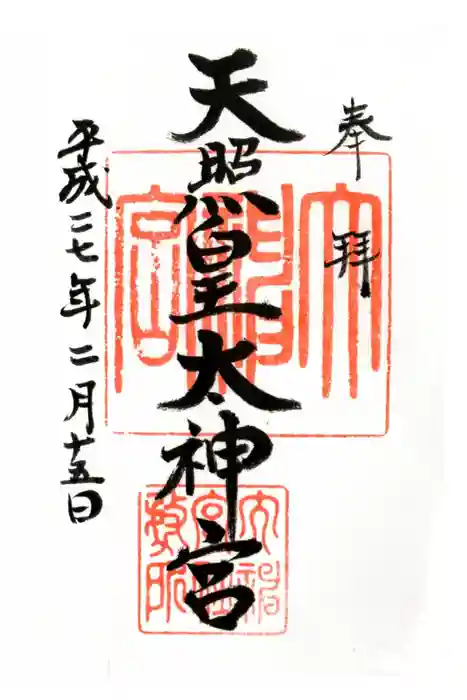 奉拝
天照皇太神宮
平成二七年二月十五日